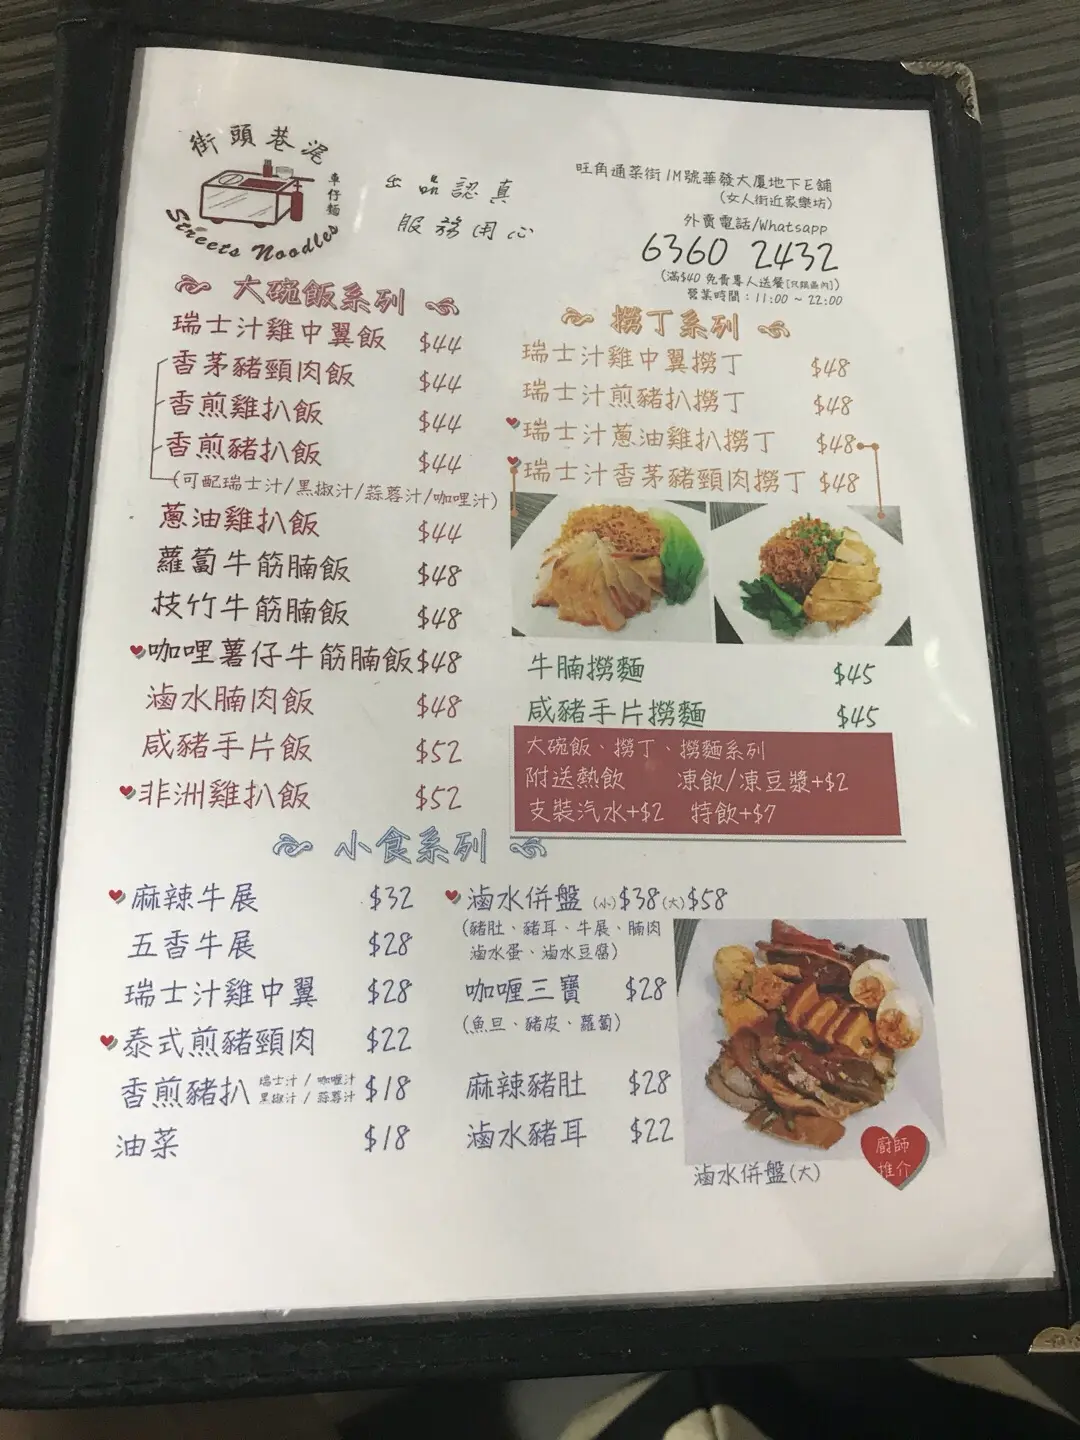 街頭巷泥
車仔麵
Streets Noodles
出品認真
服務用心
旺角通菜街1M號華發大廈地下E舖
(女人街近家樂坊)
外賣電話/Whatsapp
6360 2432
(滿$40免費專人送餐[只限區內])
營業時間：11:00 ~ 22:00
大碗飯系列
瑞士汁雞中翼飯 $44
香茅豬頸肉飯 $44
香煎雞扒飯 $44
香煎豬扒飯 $44
(可配瑞士汁/黑椒汁/蒜蓉汁/咖哩汁)
蔥油雞扒飯 $44
蘿蔔牛筋腩飯 $48
枝竹牛筋腩飯 $48
咖哩薯仔牛筋腩飯 $48
滷水腩肉飯 $48
咸豬手片飯 $52
非洲雞扒飯 $52
撈丁系列
瑞士汁雞中翼撈丁 $48
瑞士汁煎豬扒撈丁 $48
瑞士汁蔥油雞扒撈丁 $48
瑞士汁香茅豬頸肉撈丁 $48
牛腩撈麵 $45
咸豬手片撈麵 $45
大碗飯、撈丁、撈麵系列
附送熱飲 凍飲/凍豆漿+$2
支裝汽水+$2 特飲+$7
小食系列
麻辣牛展 $32
五香牛展 $28
瑞士汁雞中翼 $28
泰式煎豬頸肉 $22
香煎豬扒 瑞士汁/咖喱汁 $18
黑椒汁/蒜蓉汁
油菜 $18
滷水併盤 (小)$38(大)$58
(豬肚、豬耳、牛展、腩肉
滷水蛋、滷水豆腐)
咖喱三寶 $28
(魚旦、豬皮、蘿蔔)
麻辣豬肚 $28
滷水豬耳 $22
廚師
推介
滷水併盤(大)